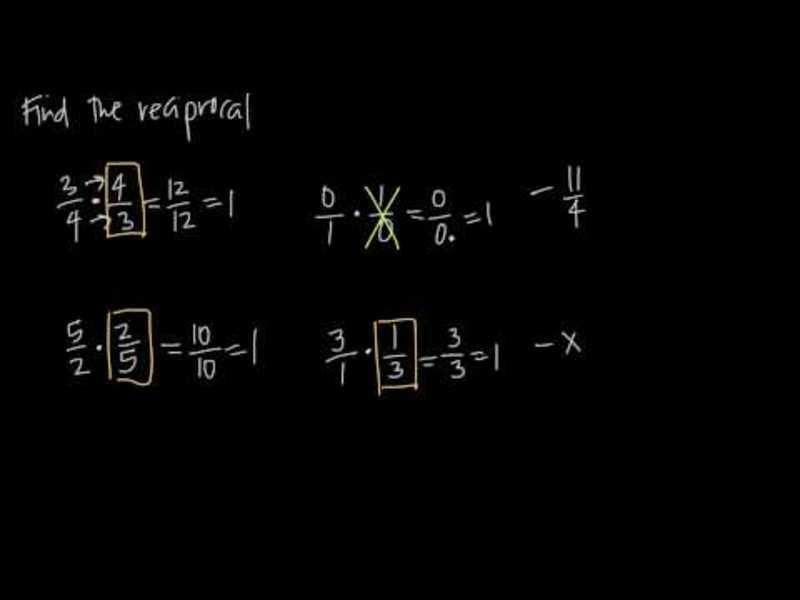 Find the reciprocal
3/4 · 4/3 = 12/12 = 1
0/1 · 1/0 = 0/0. = 1
- 11/4
5/2 · 2/5 = 10/10 = 1
3/1 · 1/3 = 3/3 = 1
- x